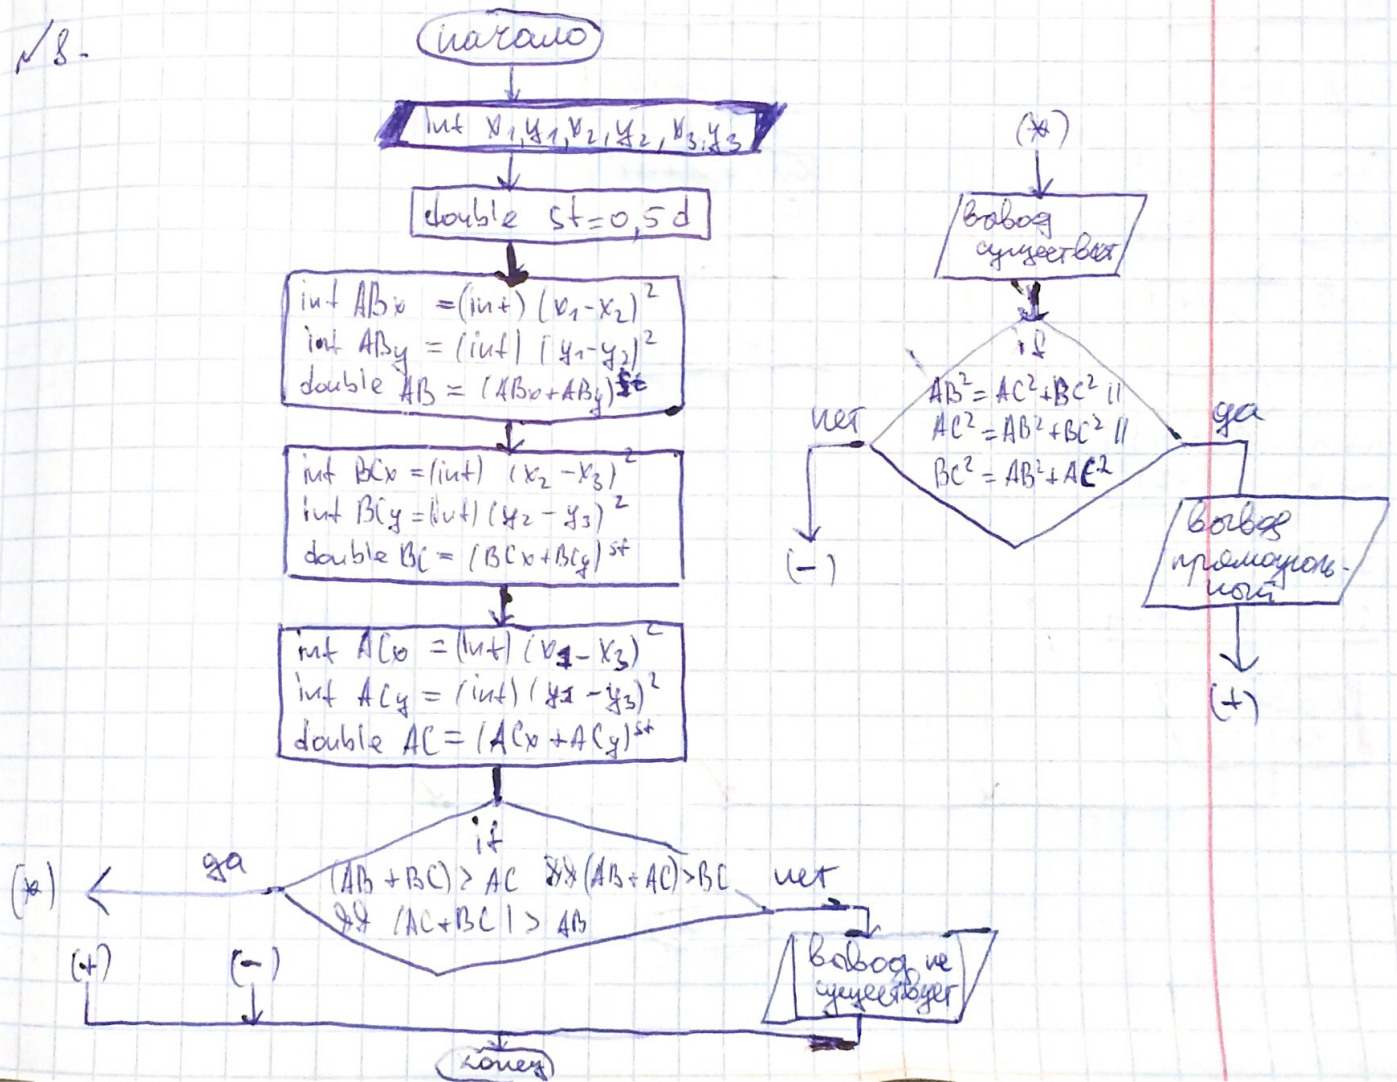 №8.
начало
int x₁,y₁,x₂,y₂,x₃,y₃
double st=0,5d
int ABx =(int) (x₁-x₂)²
int ABy = (int) (y₁-y₂)²
double AB = (ABx+ABy)^st
int BCx =(int) (x₂-x₃)²
int BCy =(int) (y₂-y₃)²
double BC = (BCx+BCy)^st
int ACx = (int) (x₁-x₃)²
int ACy = (int) (y₁-y₃)²
double AC = (ACx+ACy)^st
if
(AB+BC)> AC && (AB+AC)>BC
&& (AC+BC)> AB
да
нет
(*)
вывод не
существует
(+)
(-)
конец
(*)
вывод
существует
if
AB²=AC²+BC² ||
AC²=AB²+BC² ||
BC²=AB²+AC²
нет
да
(-)
вывод
прямоуголь-
ный
(+)